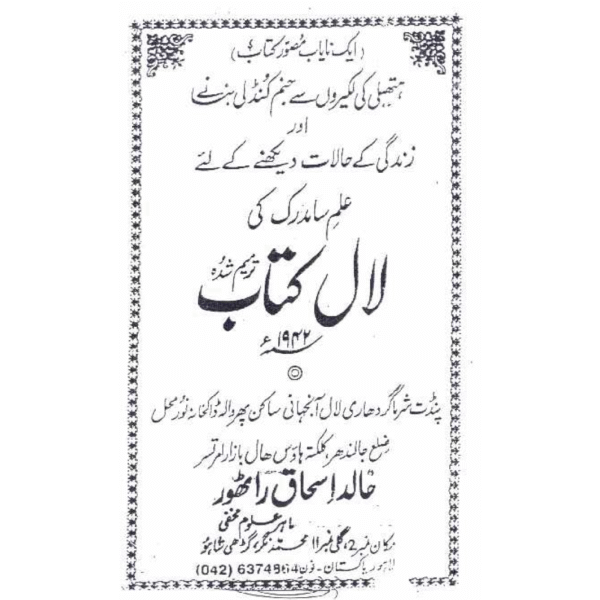 (ایک نایاب مصور کتاب)
ہتھیلی کی لکیروں سے جنم کنڈلی بنانے
اور
زندگی کے حالات دیکھنے کے لئے
علم سامدرک کی
لال کتاب ترمیم شدہ
سنہ ۱۹۴۲ء
پنڈت شرما گردھاری لال آنجہانی ساکن پھروالہ ڈاکخانہ نور محل
ضلع جالندھر، کلکتہ ہاؤس ھال بازار امرتسر
خالد اسحاق راٹھور
ماہر علوم مخفی
مکان نمبر 2، گلی نمبر 11 محمد نگر، گڑھی شاہو
لاہور پاکستان - فون 6374864 (042)